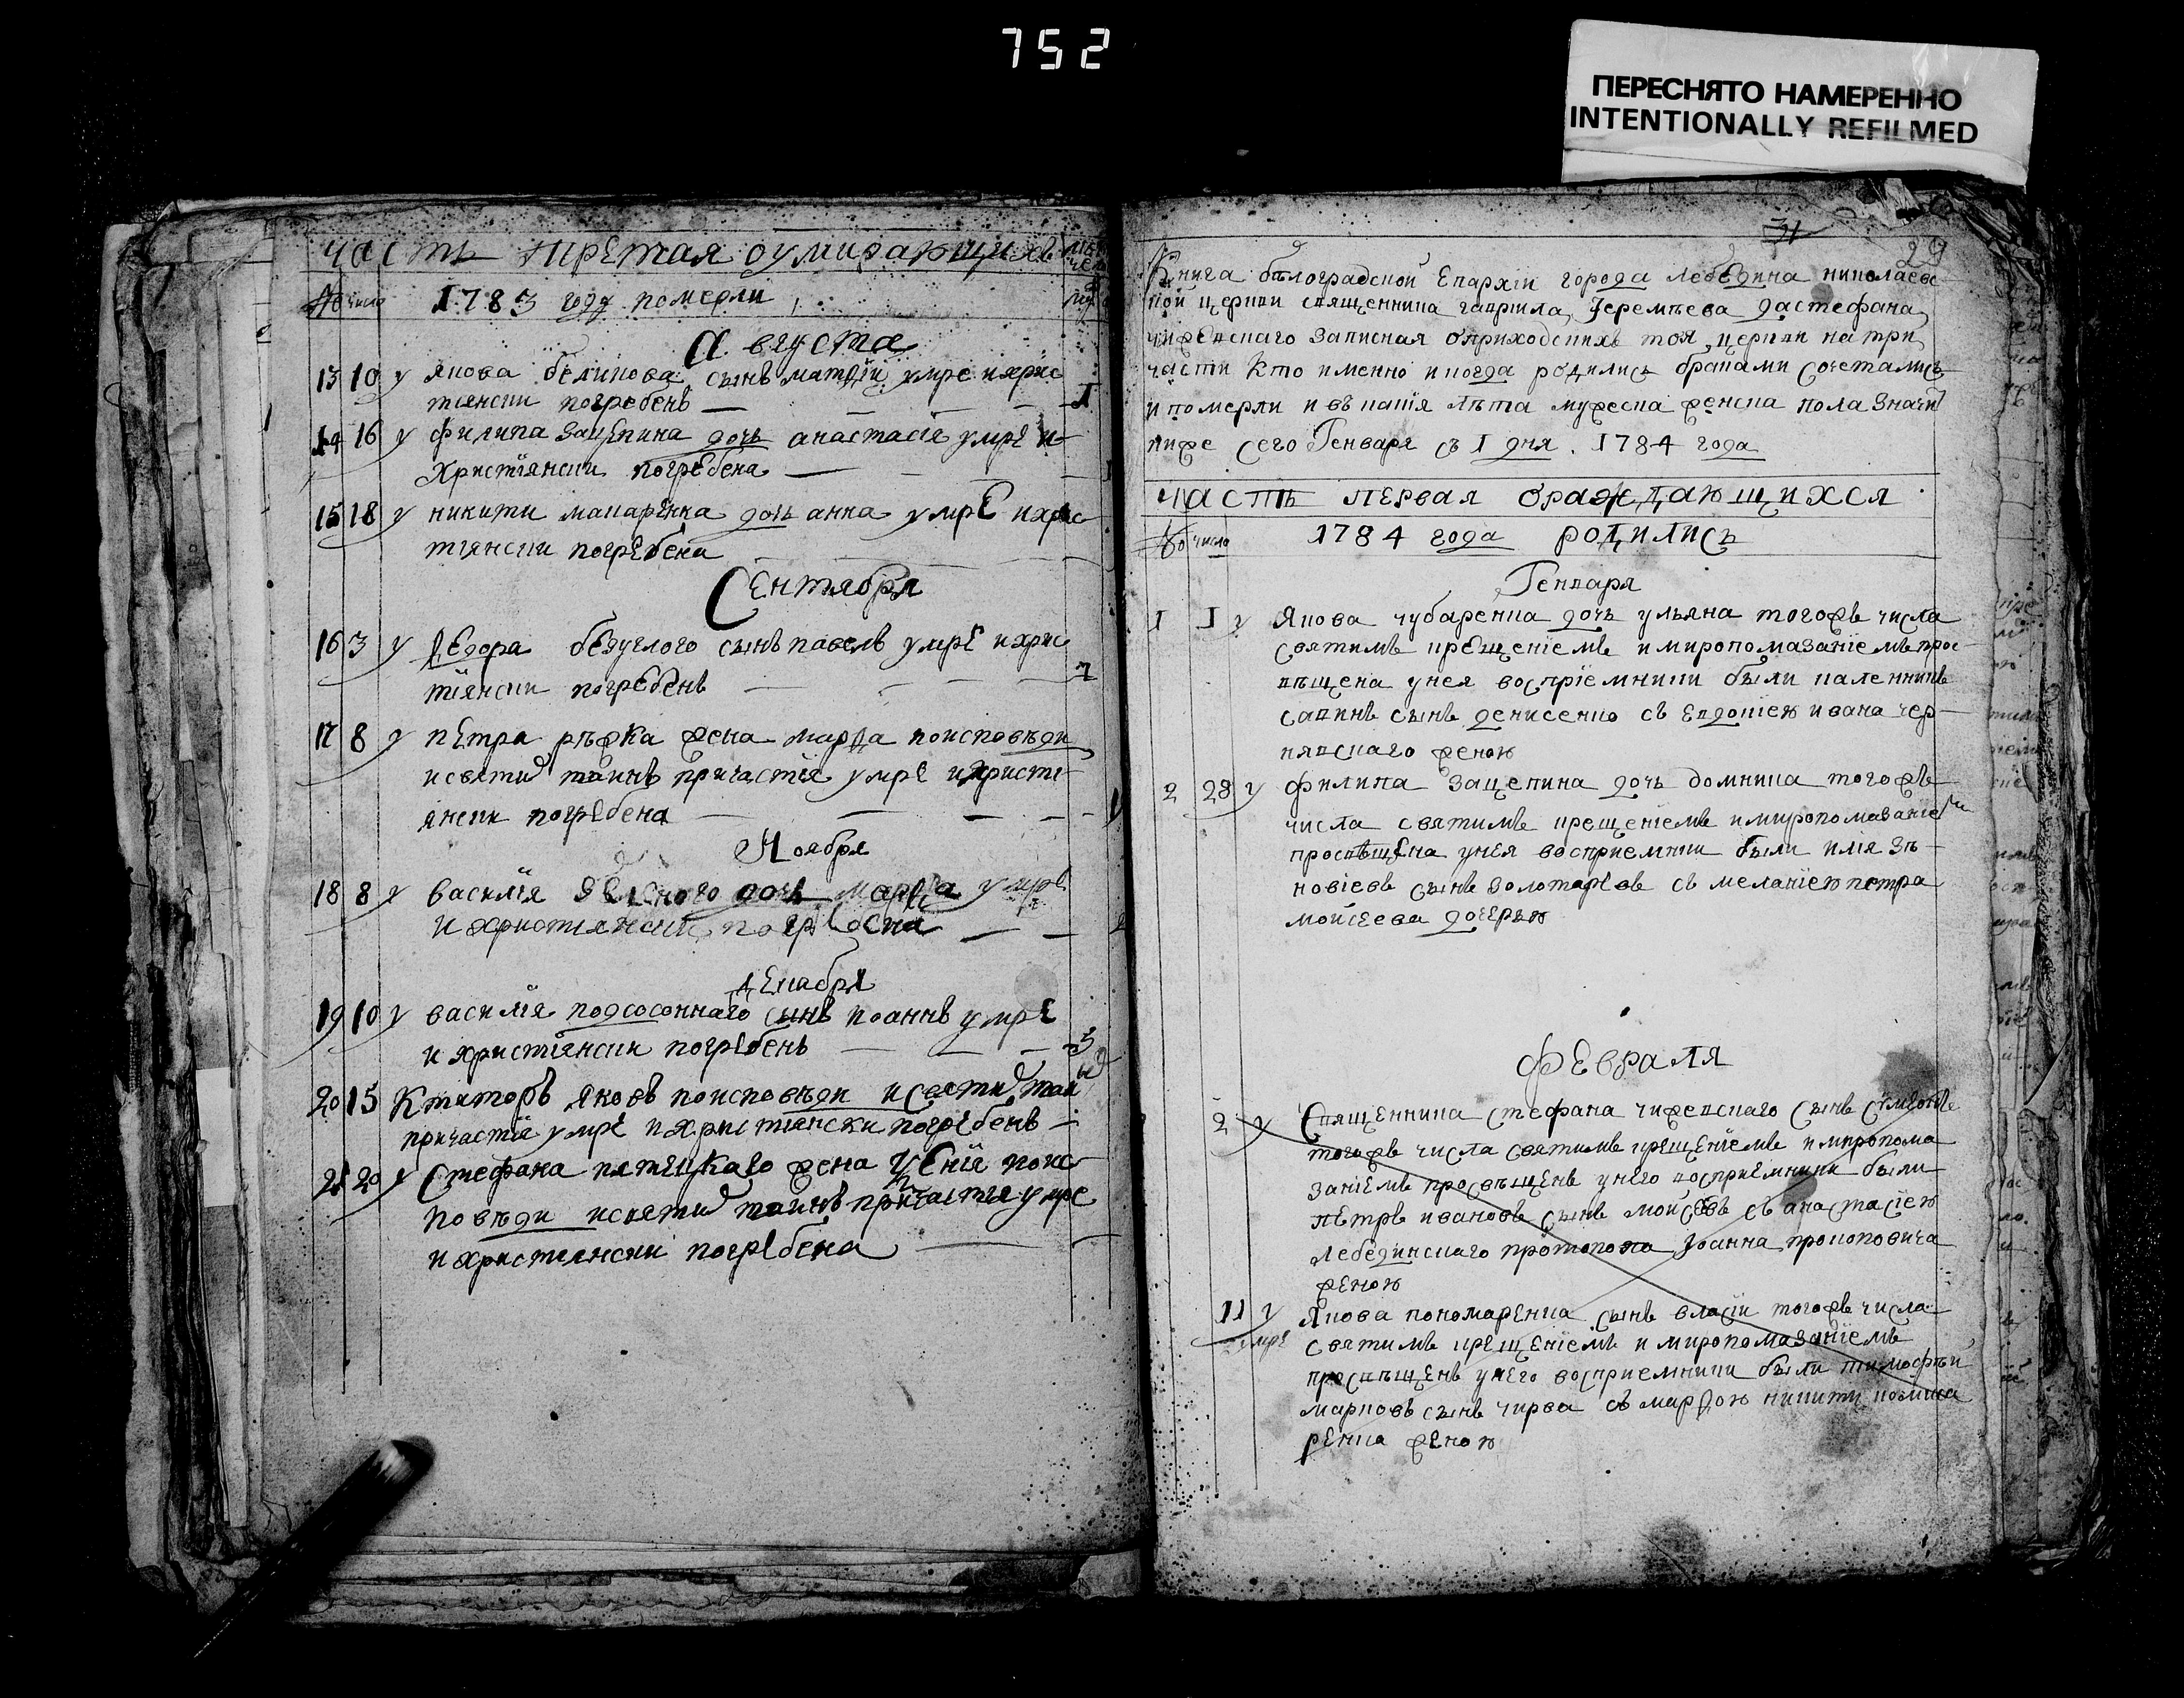 752
ПЕРЕСНЯТО НАМЕРЕННО
INTENTIONALLY REFILMED
часть третая оумирающихъ
№ число 1783 году померли
Августа
13 10 у Якова беликова сынъ матфiй умре и хрис
тiянски погребенъ
14 16 у Филипа Зацепина дочь анастасiя умре и
Христiянски погребена
15 18 у никити макаренка дочь анна умре и хрис
тiянски погребена
Сентября
16 3 у Федора безуглого сынъ павелъ умре и хрис
тiянски погребенъ
17 8 у петра жена марфа поисповѣди
и святих таинъ причастiя умре и христи
янски погребена
Ноября
18 8 у василiя дочь марфа умре
и християнски погребена
декабря
19 10 у василiя подсосоннаго сынъ иоаннъ умре
и христiянски погребенъ
20 15 Ктиторъ яковъ поисповѣди и святих таин
причастiя умре и христiянски погребенъ
21 20 у Стефана жена поис
повѣди и святих таинъ причастiя умре
и християнски погребена
31
29
Книга бѣлоградской Епархiи города лебедина николаевс
кой церкви священника гаврiила Iеремѣева да стефана
чижевскаго записная оприходскихъ тоя церкви на три
части Кто именно и когда родились браками сочетались
и померли и въ какiя лѣта мужеска женска пола значит
ниже сего Генваря съ 1 дня. 1784 года
часть первая ораждающихся
№ число 1784 года родились
Генваря
1 1 у Якова чубаренка дочь ульяна тогожъ числа
святимъ крещенiемъ и миропомазанiемъ прос
вѣщена у нея воспрiемники были каленникъ
савинъ сынъ денисенко съ Евдокiею ивана чер
нявскаго женою
2 28 у филипа Зацепина дочь домника тогожъ
числа святимъ крещенiемъ и миропомазанiем
просвѣщена у нея восприемники были илiя Зѣ
новiевъ сынъ Золотаревъ съ меланiею петра
мойсеева дочерью
Февраля
2 у Священника стефана чижевскаго сынъ сумеонъ
тогожъ числа святимъ крещенiемъ и миропома
занiемъ просвѣщенъ у него восприемники были
петръ ивановъ сынъ мойсеевъ съ анастасiею
Лебединскаго протопопа Iоанна прокоповича
женою
11 у Якова пономаренка сынъ власiи тогожъ числа
умре святимъ крещенiемъ и миропомазанiемъ
просвѣщенъ у него восприемники были тимофѣй
марковъ сынъ чирва съ марфою никити
ренка женою